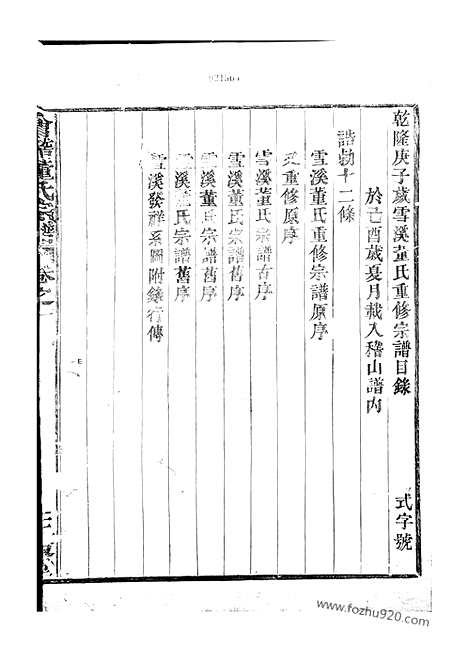 乾隆庚子歲雪溪董氏重修宗譜目錄 式字號
於己酉歲夏月載入稽山譜內
誥勅十二條
雪溪董氏重修宗譜原序
又重修原序
雪溪董氏宗譜古序
雪溪董氏宗譜舊序
雪溪董氏宗譜舊序
溪董氏宗譜舊序
雪溪發祥系圖附錄行傳
會稽董氏宗譜 卷之
www.fozhu920.com